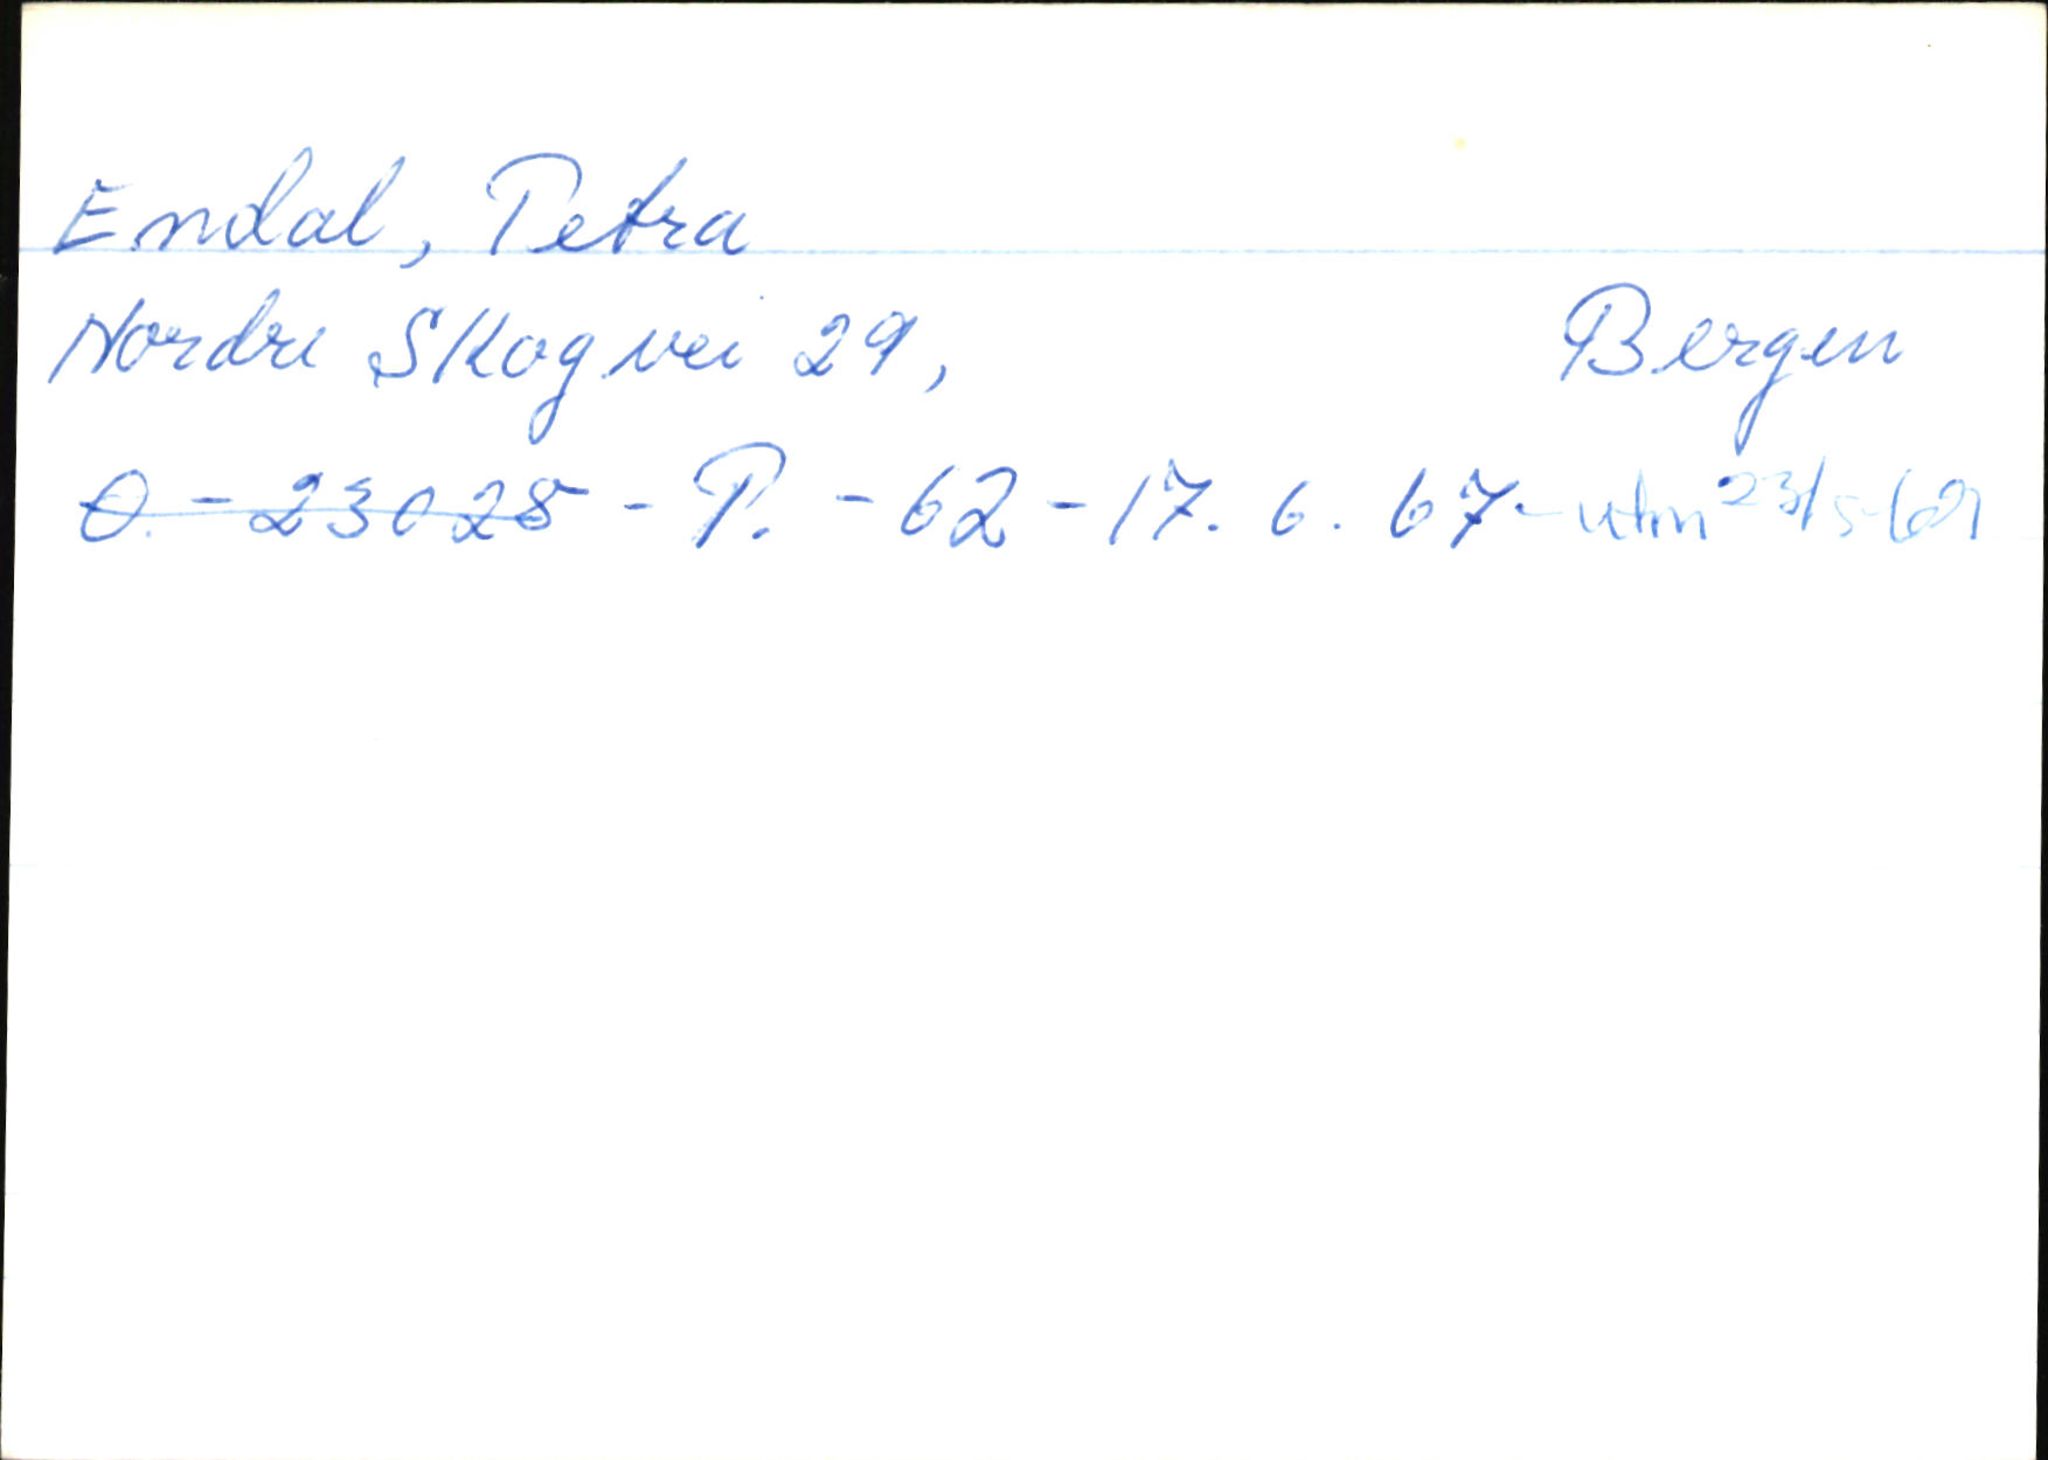 Endal, Petra
Nordre Skogvei 29, Bergen
O. - 23028 - P. - 62 - 17. 6. 67 - utm 23/5-69